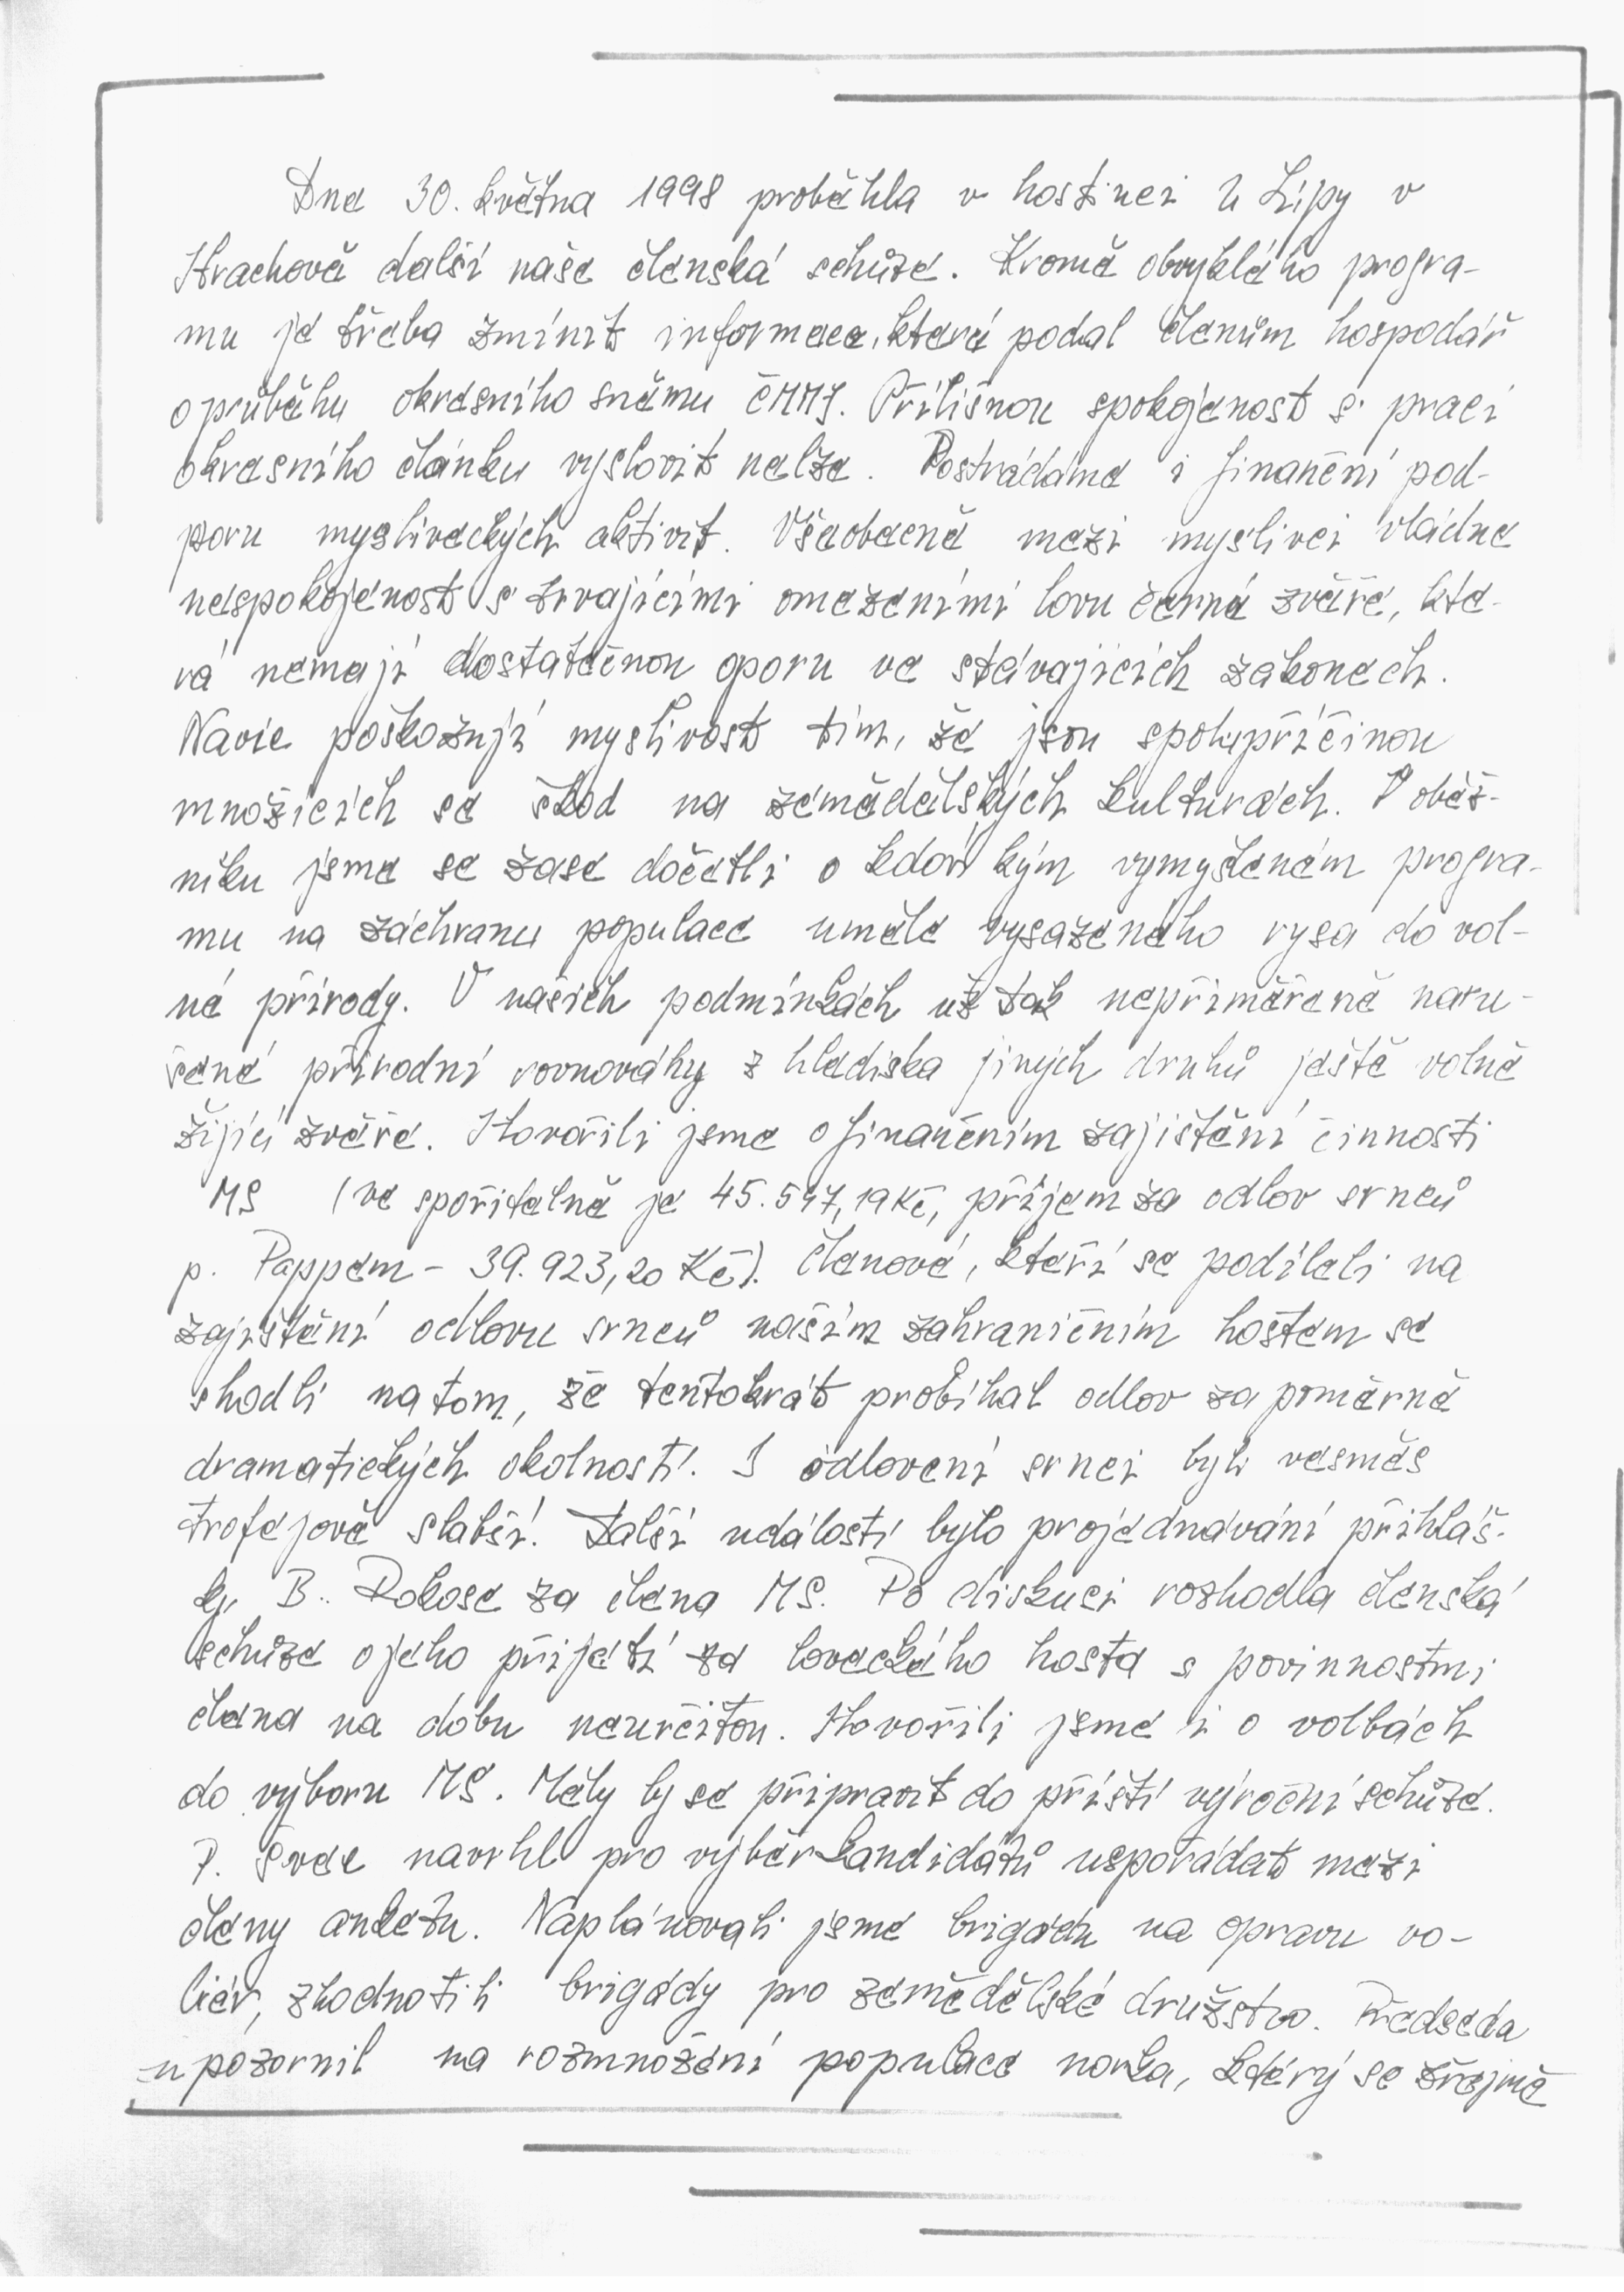 Dne 30. května 1998 proběhla v hostinci U Lípy v
Hrachově další naše členská schůze. Kromě obvyklého progra-
mu je třeba zmínit informace, které podal členům hospodář
o průběhu okresního sněmu ČMMJ. Přílišnou spokojenost s prací
okresního článku vyslovit nelze. Postrádáme i finanční pod-
poru mysliveckých aktivit. Všeobecně mezi myslivci vládne
nespokojenost s trvajícími omezeními lovu černé zvěře, kte-
rá nemají dostatečnou oporu ve stávajících zákonech.
Navíc poškozují myslivost tím, že jsou spolupříčinou
množících se škod na zemědělských kulturách. V oběž-
níku jsme se zase dočetli o kdoví kým vymyšleném progra-
mu na záchranu populace uměle vysazeného rysa do vol-
né přírody. V našich podmínkách už tak nepřiměřeně naru-
šené přírodní rovnováhy z hlediska jiných druhů ještě volně
žijící zvěře. Hovořili jsme o finančním zajištění činnosti
MS (ve spořitelně je 45.597,19 Kč, příjem za odlov srnců
p. Pappem - 39.923,20 Kč). Členové, kteří se podíleli na
zajištění odlovu srnců našim zahraničním hostem se
shodli na tom, že tentokrát probíhal odlov za poměrně
dramatických okolností. I odlovení srnci byli vesměs
trofejově slabší. Další událostí bylo projednávání přihláš-
ky B. Dokose za člena MS. Po diskuci rozhodla členská
schůze o jeho přijetí za loveckého hosta s povinnostmi
člena na dobu neurčitou. Hovořili jsme i o volbách
do výboru MS. Měly by se připravit do příští výroční schůze.
P. Švec navrhl pro výběr kandidátů uspořádat mezi
členy anketu. Naplánovali jsme brigádu na opravu vo-
liér, zhodnotili brigády pro zemědělské družstvo. Předseda
upozornil na rozmnožení populace norka, který se zřejmě